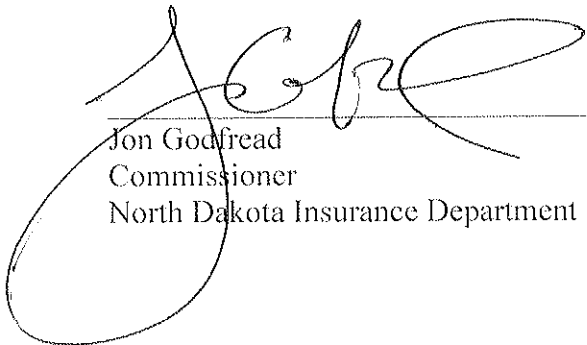 Jon Godfread
Commissioner
North Dakota Insurance Department